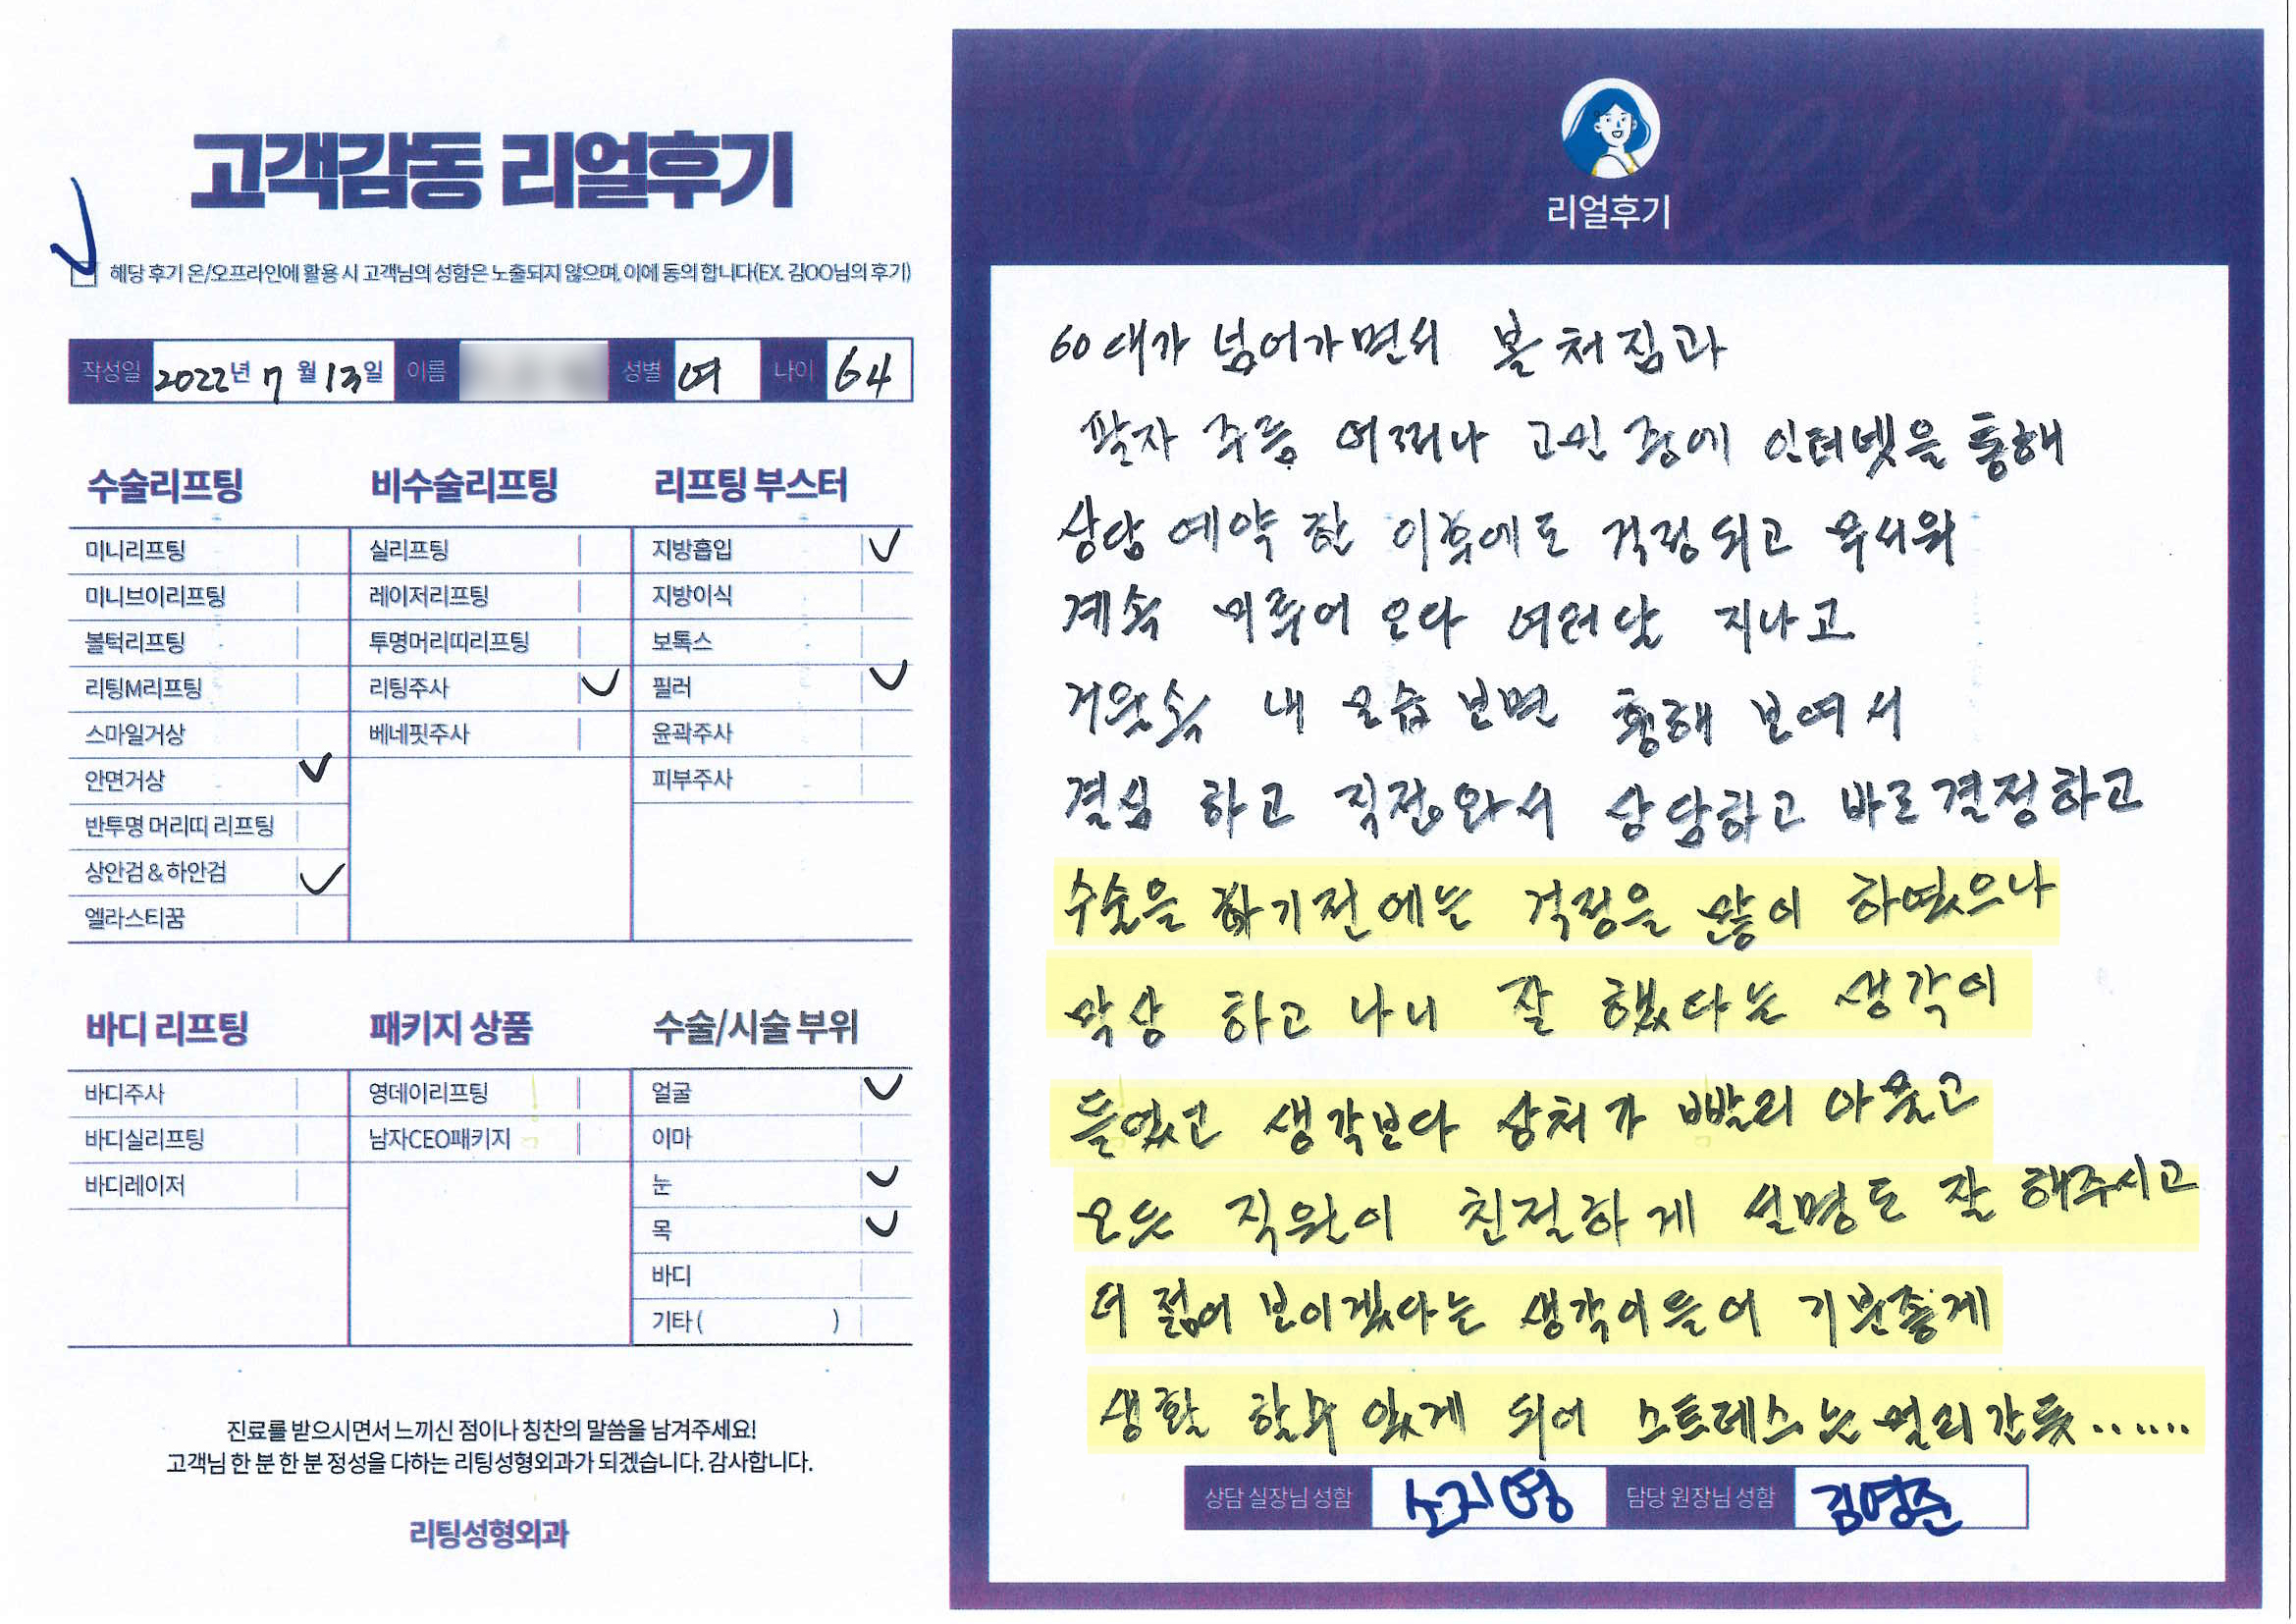 고객감동 리얼후기
해당 후기 온/오프라인에 활용 시 고객님의 성함은 노출되지 않으며, 이에 동의 합니다(EX. 김OO님의 후기)
작성일 2022년 7월 13일 이름 성별 여 나이 64
수술리프팅
미니리프팅
미니브이리프팅
볼턱리프팅
리팅M리프팅
스마일거상
안면거상
반투명 머리띠 리프팅
상안검 & 하안검
엘라스티꿈
비수술리프팅
실리프팅
레이저리프팅
투명머리띠리프팅
리팅주사
베네핏주사
리프팅 부스터
지방흡입
지방이식
보톡스
필러
윤곽주사
피부주사
바디 리프팅
바디주사
바디실리프팅
바디레이저
패키지 상품
영데이리프팅
남자CEO패키지
수술/시술 부위
얼굴
이마
눈
목
바디
기타 ( )
진료를 받으시면서 느끼신 점이나 칭찬의 말씀을 남겨주세요!
고객님 한 분 한 분 정성을 다하는 리팅성형외과가 되겠습니다. 감사합니다.
리팅성형외과
리얼후기
60대가 넘어가면서 볼 처짐과
팔자 주름 어쩌나 고민 중에 인터넷을 통해
상담 예약 한 이후에도 걱정되고 무서워
계속 미루어 오다 여러달 지나고
거울속 내 모습 보면 흉해 보여서
결심 하고 직접와서 상담하고 바로결정하고
수술을 하기전에는 걱정을 많이 하였으나
막상 하고 나니 잘 했다는 생각이
들었고 생각보다 상처가 빨리 아물고
모든 직원이 친절하게 설명도 잘 해주시고
더 젊어 보이겠다는 생각이들어 기분좋게
생활 할수 있게 되어 스트레스는 멀리간듯......
상담 실장님 성함 소지영 담당 원장님 성함 김영준